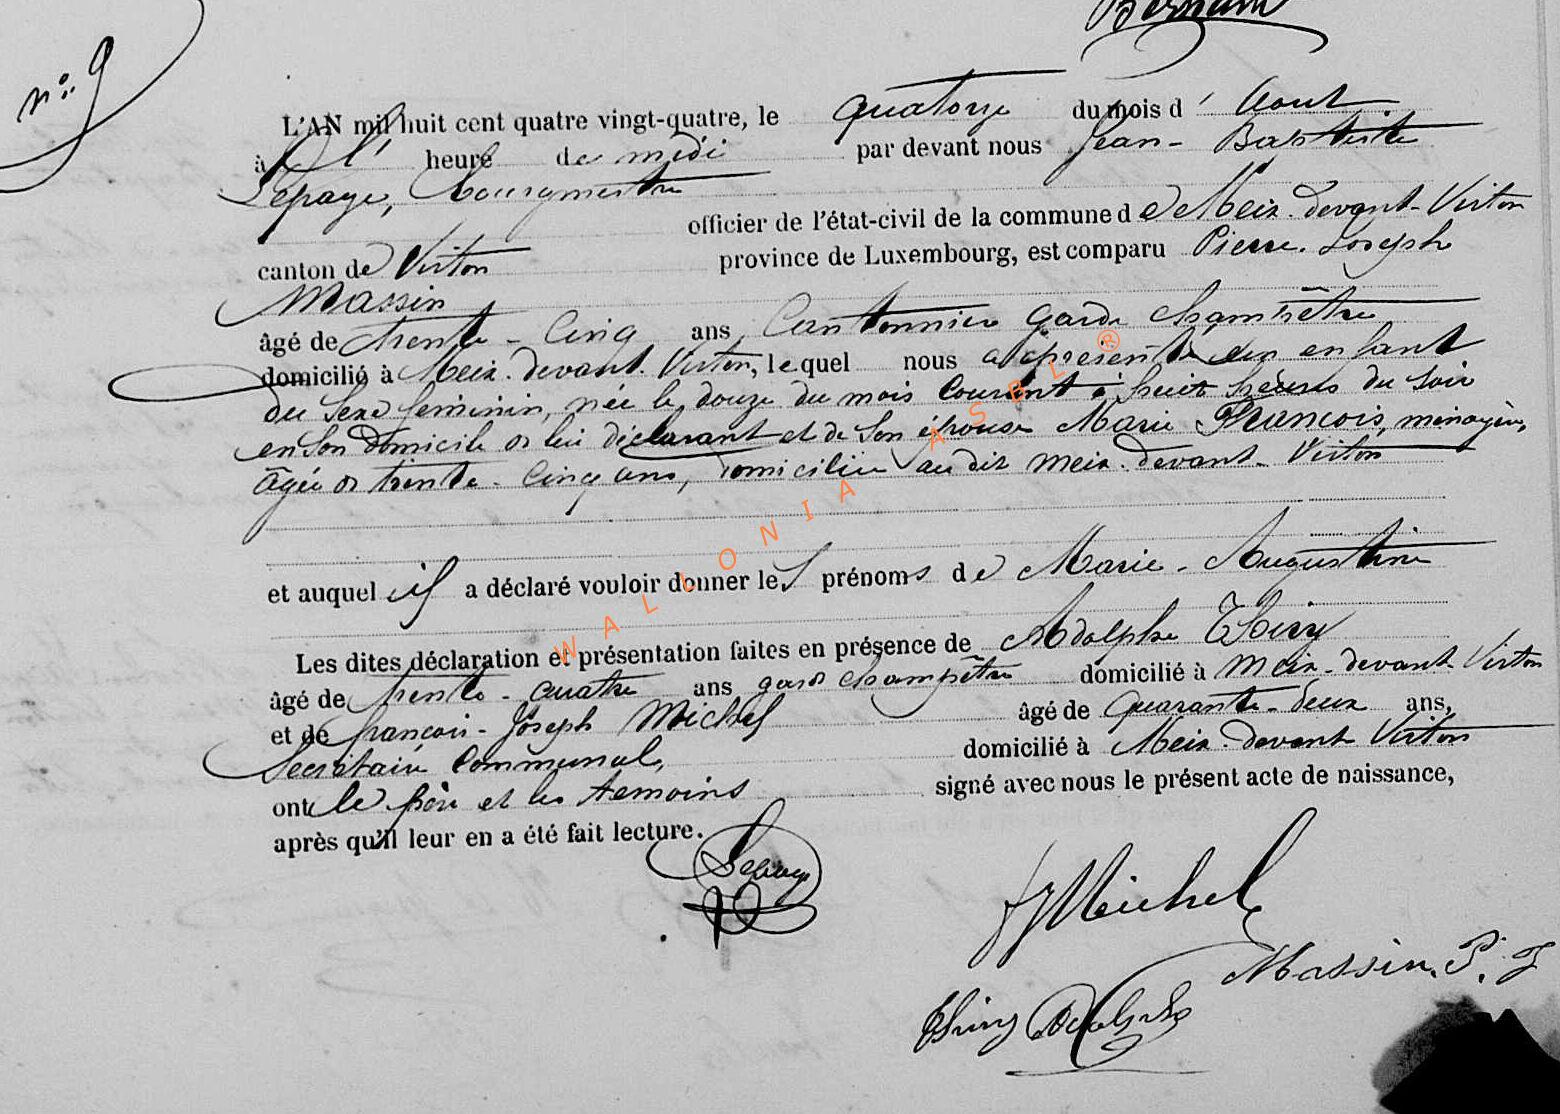 Bernard
n° 9
L'AN mil huit cent quatre vingt-quatre, le quatorze du mois d' Aout
à l' heure de midi par devant nous Jean-Baptiste
Lepage, bourgmestre
officier de l'état-civil de la commune de Meix-devant-Virton
canton de Virton province de Luxembourg, est comparu Pierre-Joseph
Massin
âgé de trente-cinq ans Cantonnier garde champêtre
domicilié à Meix-devant-Virton, lequel nous a présenté un enfant
du sexe feminin, née le douze du mois courant à huit heures du soir
en son domicile de lui déclarant et de son épouse Marie François, ménagère,
âgée de trente-cinq ans, domiciliée audit Meix-devant-Virton
et auquel il a déclaré vouloir donner les prénoms de Marie-Augustine
Les dites déclaration et présentation faites en présence de Adolphe Thiry
âgé de trente-quatre ans garde champêtre domicilié à Meix-devant-Virton
et de françois-Joseph Michel âgé de quarante-deux ans,
Secrétaire Communal, domicilié à Meix-devant-Virton
ont le père et les temoins signé avec nous le présent acte de naissance,
après qu'il leur en a été fait lecture.
Lepage
fj Michel
Massin. P. J
Thiry Adolphe
WALLONIA ASBL ®